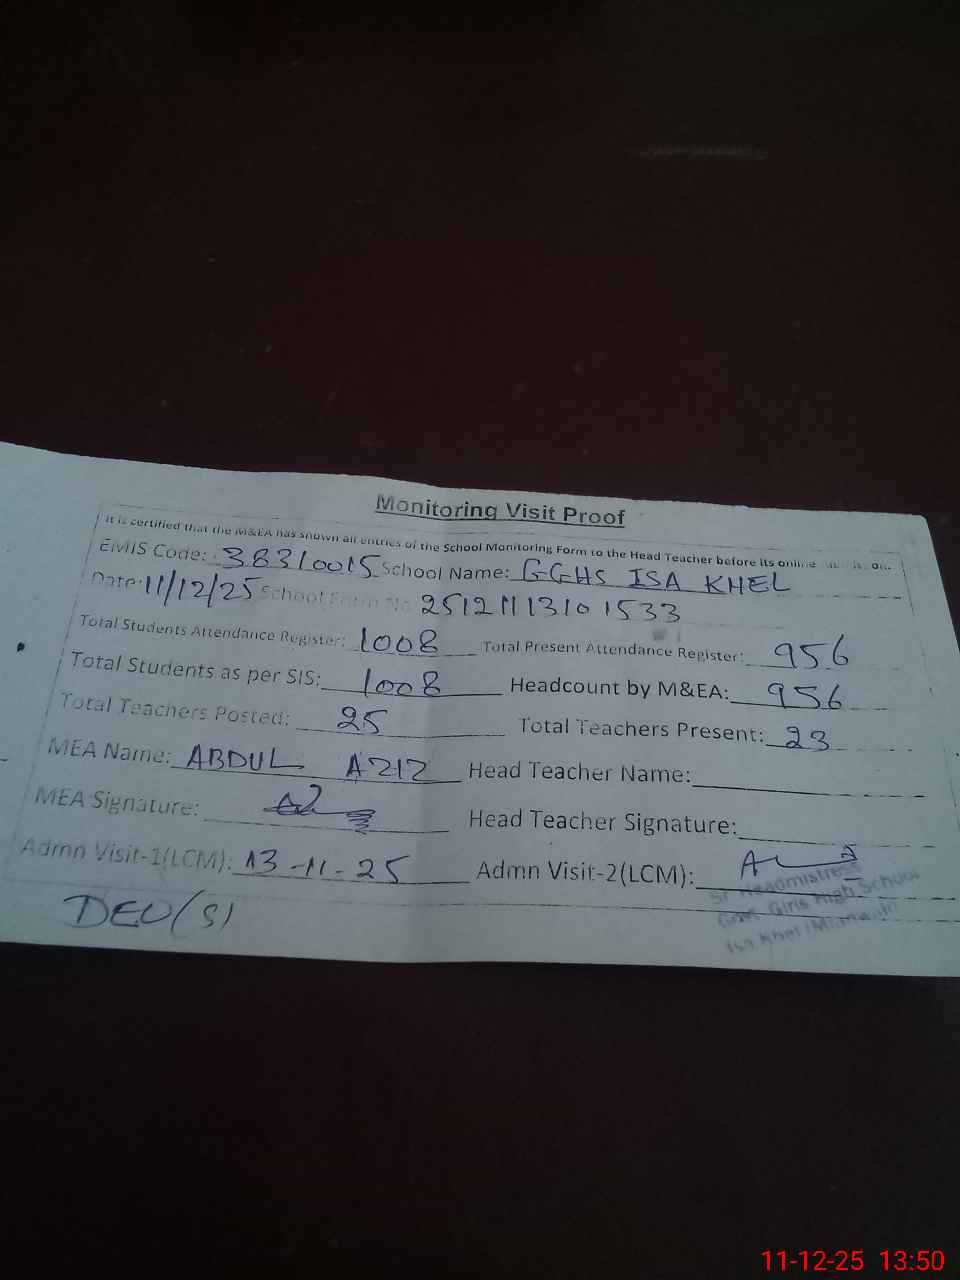 Monitoring Visit Proof
It is certified that the M&EA has shown all entries of the School Monitoring Form to the Head Teacher before its online
EMIS Code: 38310015 School Name: GGHS ISA KHEL
Date: 11/12/25 School Form No 25121113101533
Total Students Attendance Register: 1008 Total Present Attendance Register: 956
Total Students as per SIS: 1008 Headcount by M&EA: 956
Total Teachers Posted: 25 Total Teachers Present: 23
MEA Name: ABDUL AZIZ Head Teacher Name:
MEA Signature: Head Teacher Signature:
Admn Visit-1(LCM): 13-11-25 Admn Visit-2(LCM):
DEO(S)
Sr. Headmistress
Govt. Girls High School
Isa Khel (Mianwali)
11-12-25 13:50